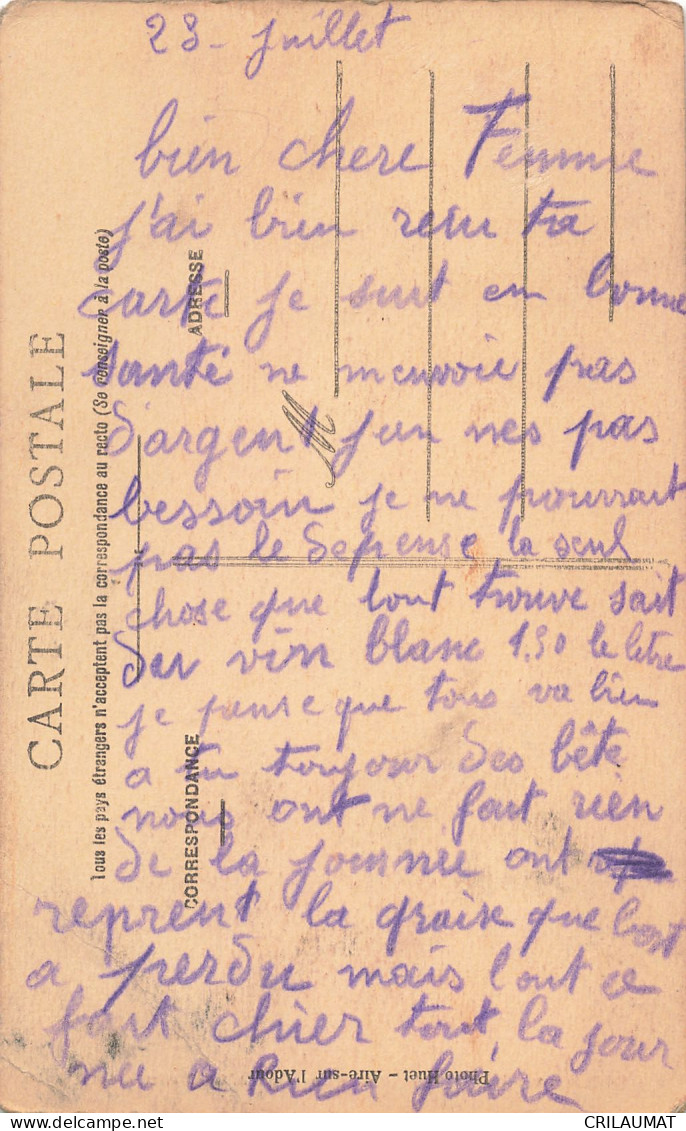 23 - juillet
bien chere Femme
j'ai bien recu ta
carte je suit en bonne
santé ne m'envoie pas
d'argent j'un nes pas
bessoin je ne pourrait
pas le depense la seul
chose que lont trouve sait
der vin blanc 1.50 le letre
je panse que tous va bien
a tu toujour des bête
nous ont ne fait rien
de la journee ont
reprent la graise que lont
a perdu mais lont ce
fait chier tout la jour
nee a Rien faire
CARTE POSTALE
Tous les pays étrangers n'acceptent pas la correspondance au recto (Se renseigner à la poste)
CORRESPONDANCE
ADRESSE
Photo Huet - Aire-sur l'Adour
CRILAUMAT
delcampe.net